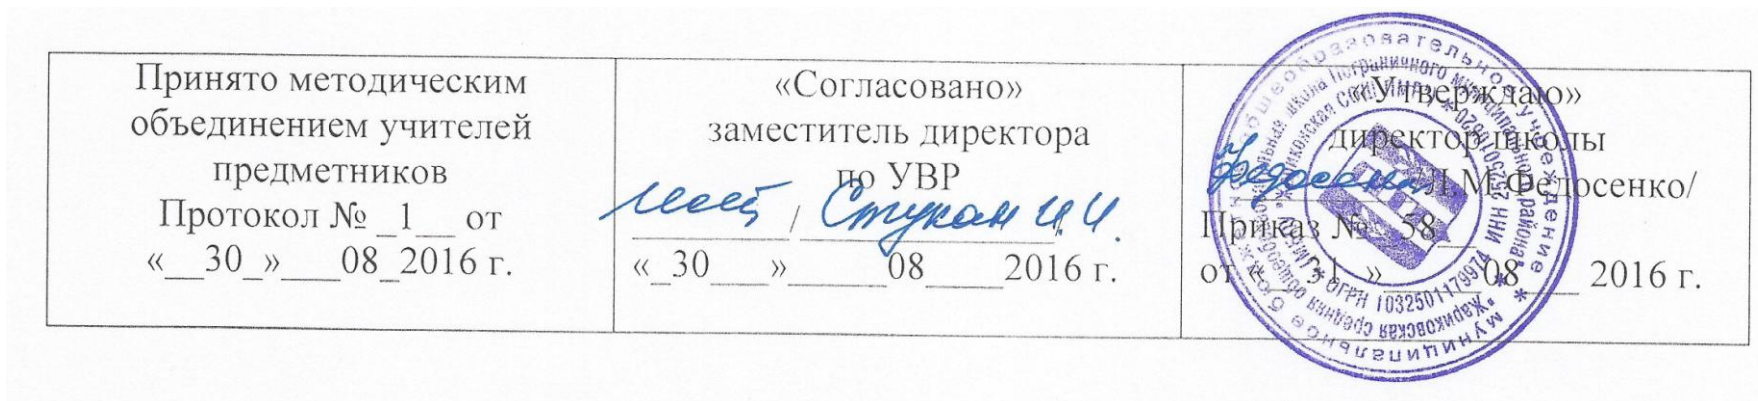 Принято методическим
объединением учителей
предметников
Протокол № _1__ от
«__30_»___08_2016 г.
«Согласовано»
заместитель директора
по УВР
/ Стукан И.И.
«_30___»_____08____2016 г.
«Утверждаю»
директор школы
Федосенко /Л.М.Федосенко/
Приказ № _58__
от «__31_»_____08___ 2016 г.
муниципальное бюджетное общеобразовательное учреждение *
"Жариковская средняя общеобразовательная школа Пограничного муниципального района"
ОГРН 1032501179974 * ИНН